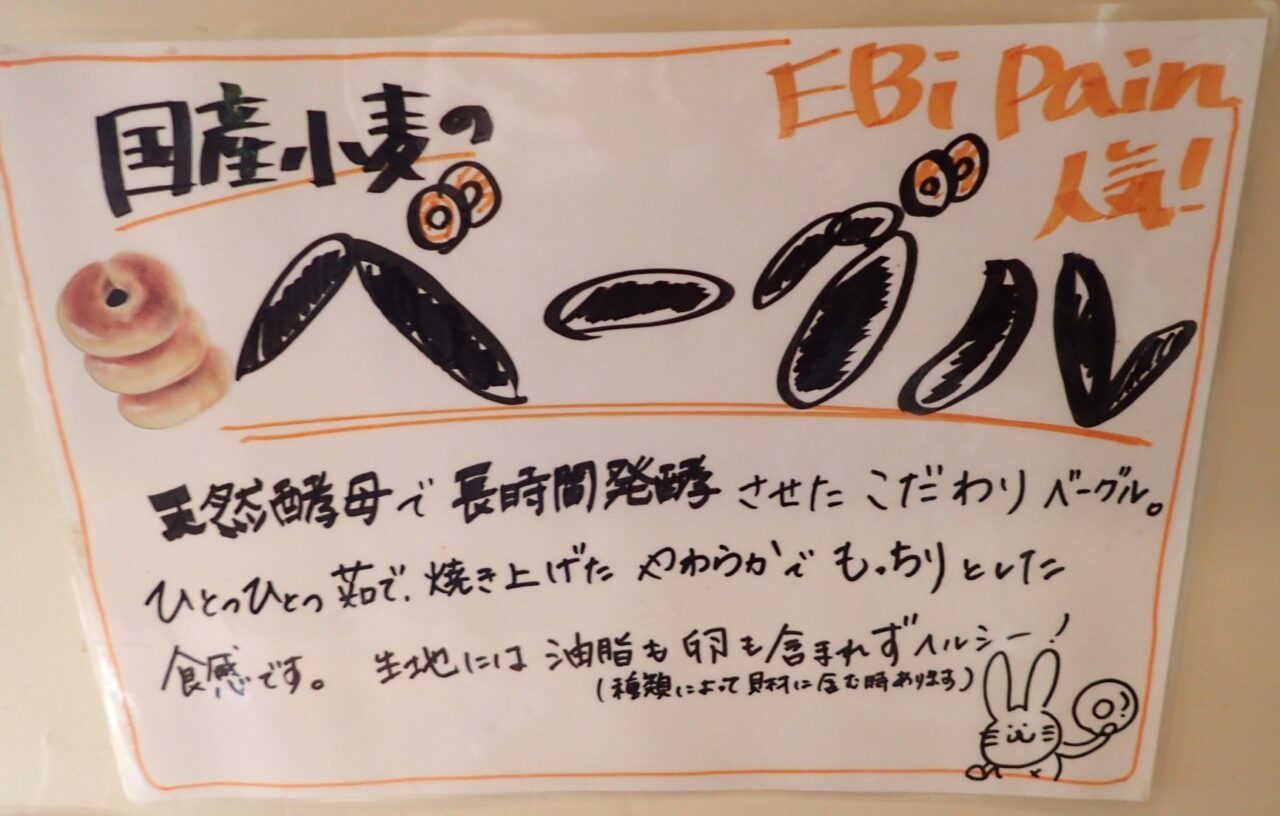 EBi Pain
人気!
国産小麦の
ベーグル
天然酵母で長時間発酵させたこだわりベーグル。
ひとつひとつ茹で、焼き上げたやわらかでもっちりとした
食感です。 生地には油脂も卵も含まれずヘルシー!
(種類によって具材に含む時あります)